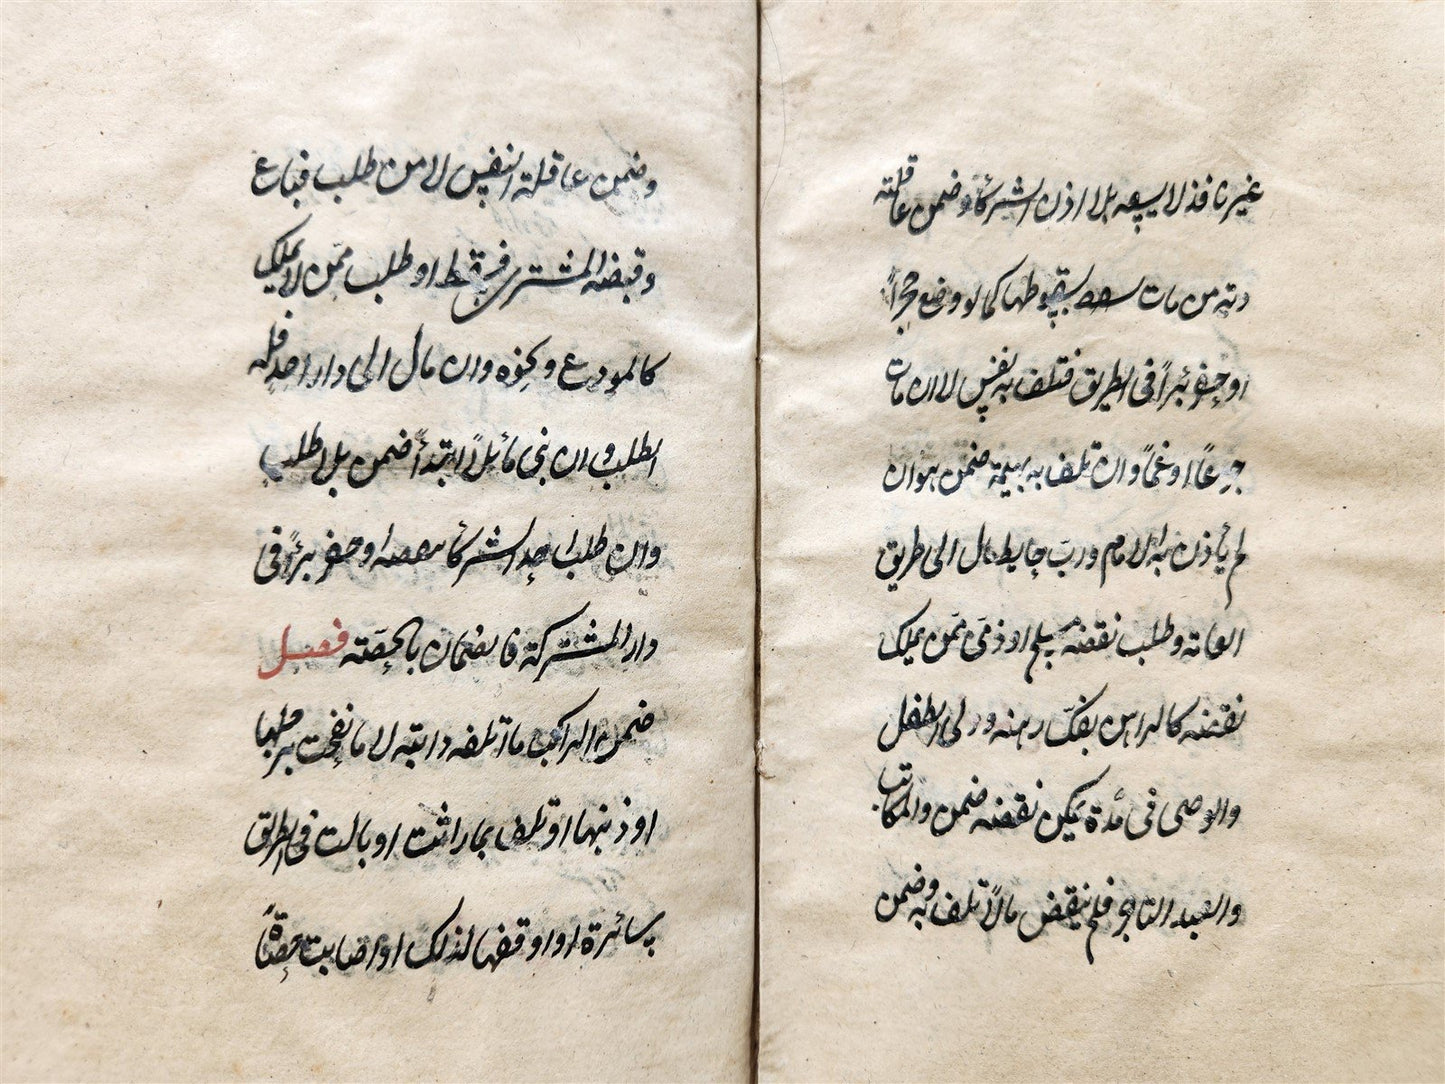 غير نافذ لا يسعه بلا اذن الشركأ وضمن عاقلته
دية من مات بسقوطها كما لو وضع حجراً
او حفر بئراً فى الطريق فتلف به نفس لا ان مات
جوعاً او غماً وان تلف به بهيمة ضمن هو ان
لم يأذن به الامام ورب حايط مال الى طريق
العامة وطلب نقضه مسلم او ذمى ممن يملك
نقضه كالراهن بفك رهنه وولى الطفل
والوصى فى مدة يمكن نقضه ضمن والمكاتب
والعبد التاجر فلم ينقض مالاً تلف به وضمن
وضمن عاقلته النفس لا من طلب فباع
وقبضه المشترى فسقط او طلب ممن لا يملك
كالمودع ونحوه وان مال الى دار احد فله
الطلب وان بنى مائلاً ابتدأً ضمن بلا طلب
وان طلب احد الشركأ او حفر بئراً فى
دار المشتركة فالضمان بالحصة فصل
ضمن الراكب ما اتلفه دابته لا ما نفحت برجلها
او ذنبها او تلف بما راثت او بالت فى الطريق
سائرة او اوقفها لذلك او اصابت حصاة